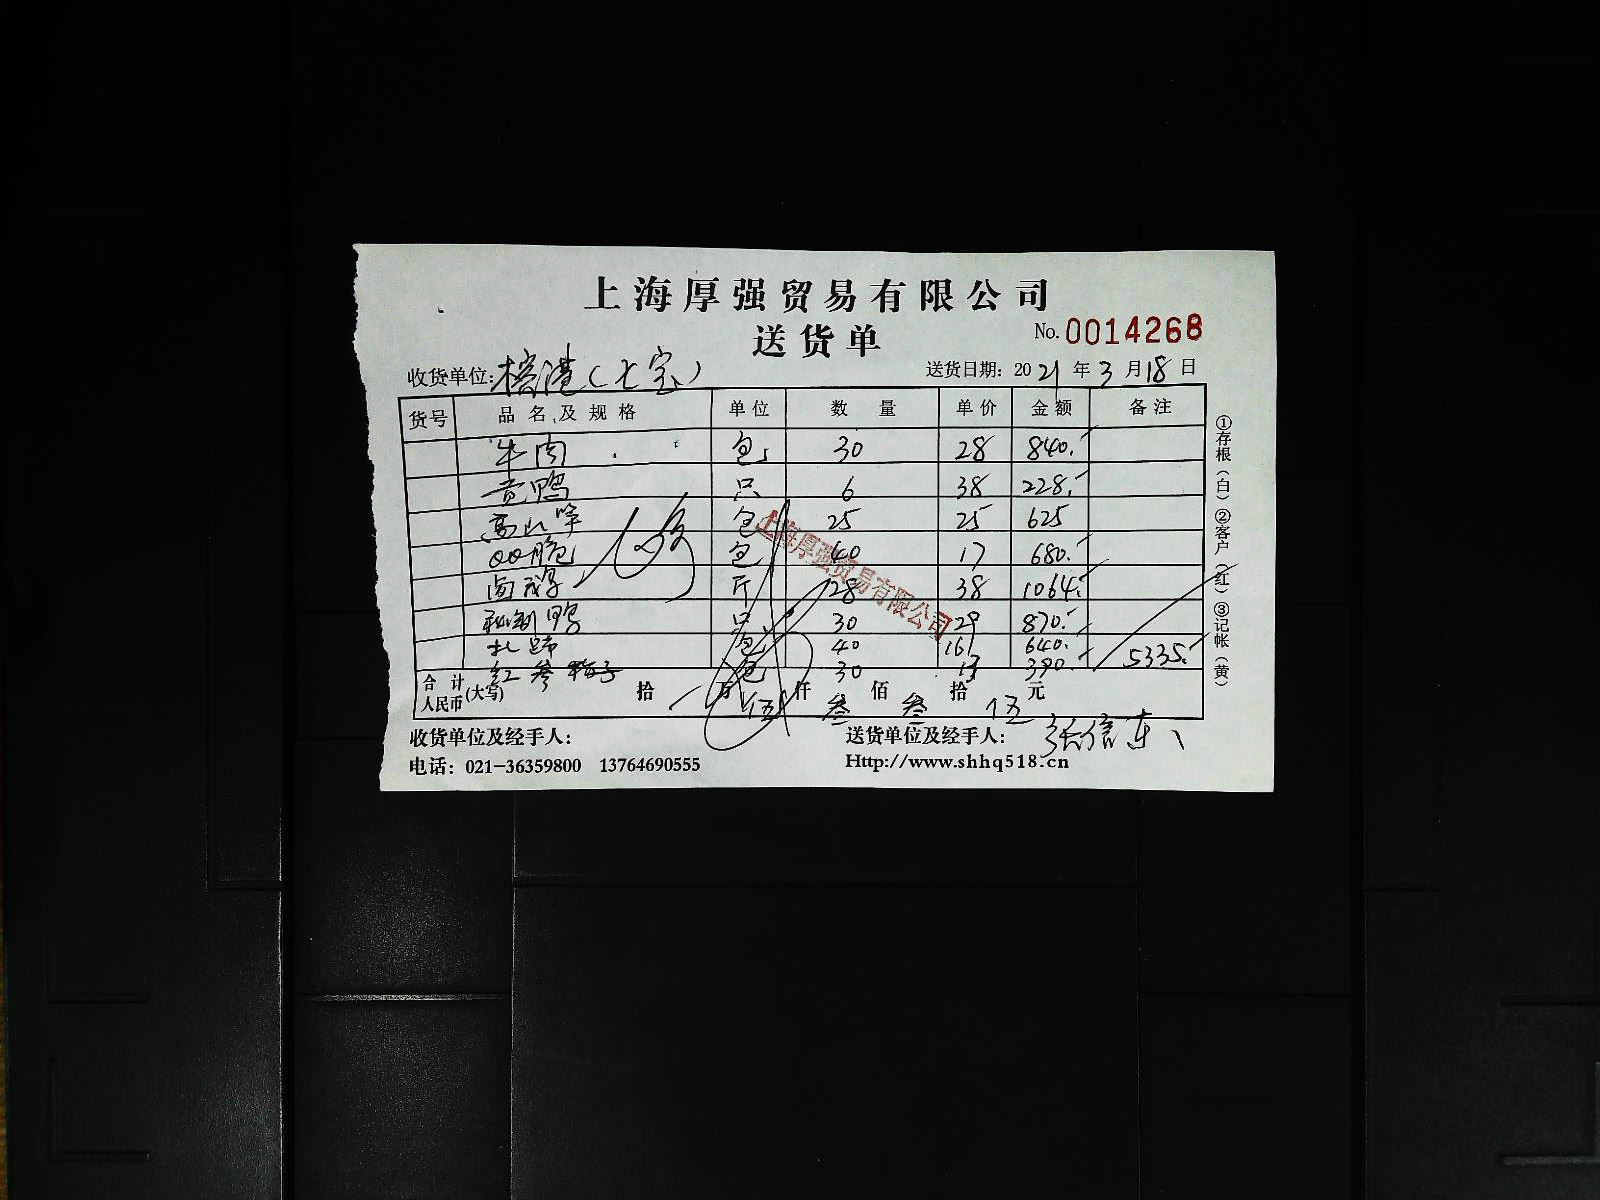 上海厚强贸易有限公司
送货单
No. 0014268
收货单位: 榕港(七宝)
送货日期: 2021 年 3 月 18 日
货号 品名及规格 单位 数量 单价 金额 备注
牛肉 包 30 28 840.
贡鸭 只 6 38 228.
高山笋 包 25 25 625
QQ脆 包 40 17 680.
卤 斤 28 38 1064.
秘制鸭 只 30 29 870.
扎蹄 包 40 16 640.
红参 包 30 13 390. 5335.
合计人民币(大写) 拾 万 伍 仟 叁 佰 叁 拾 伍 元
收货单位及经手人:
送货单位及经手人: 张信东
电话: 021-36359800 13764690555
Http://www.shhq518.cn
①存根(白)②客户(红)③记帐(黄)
上海厚强贸易有限公司